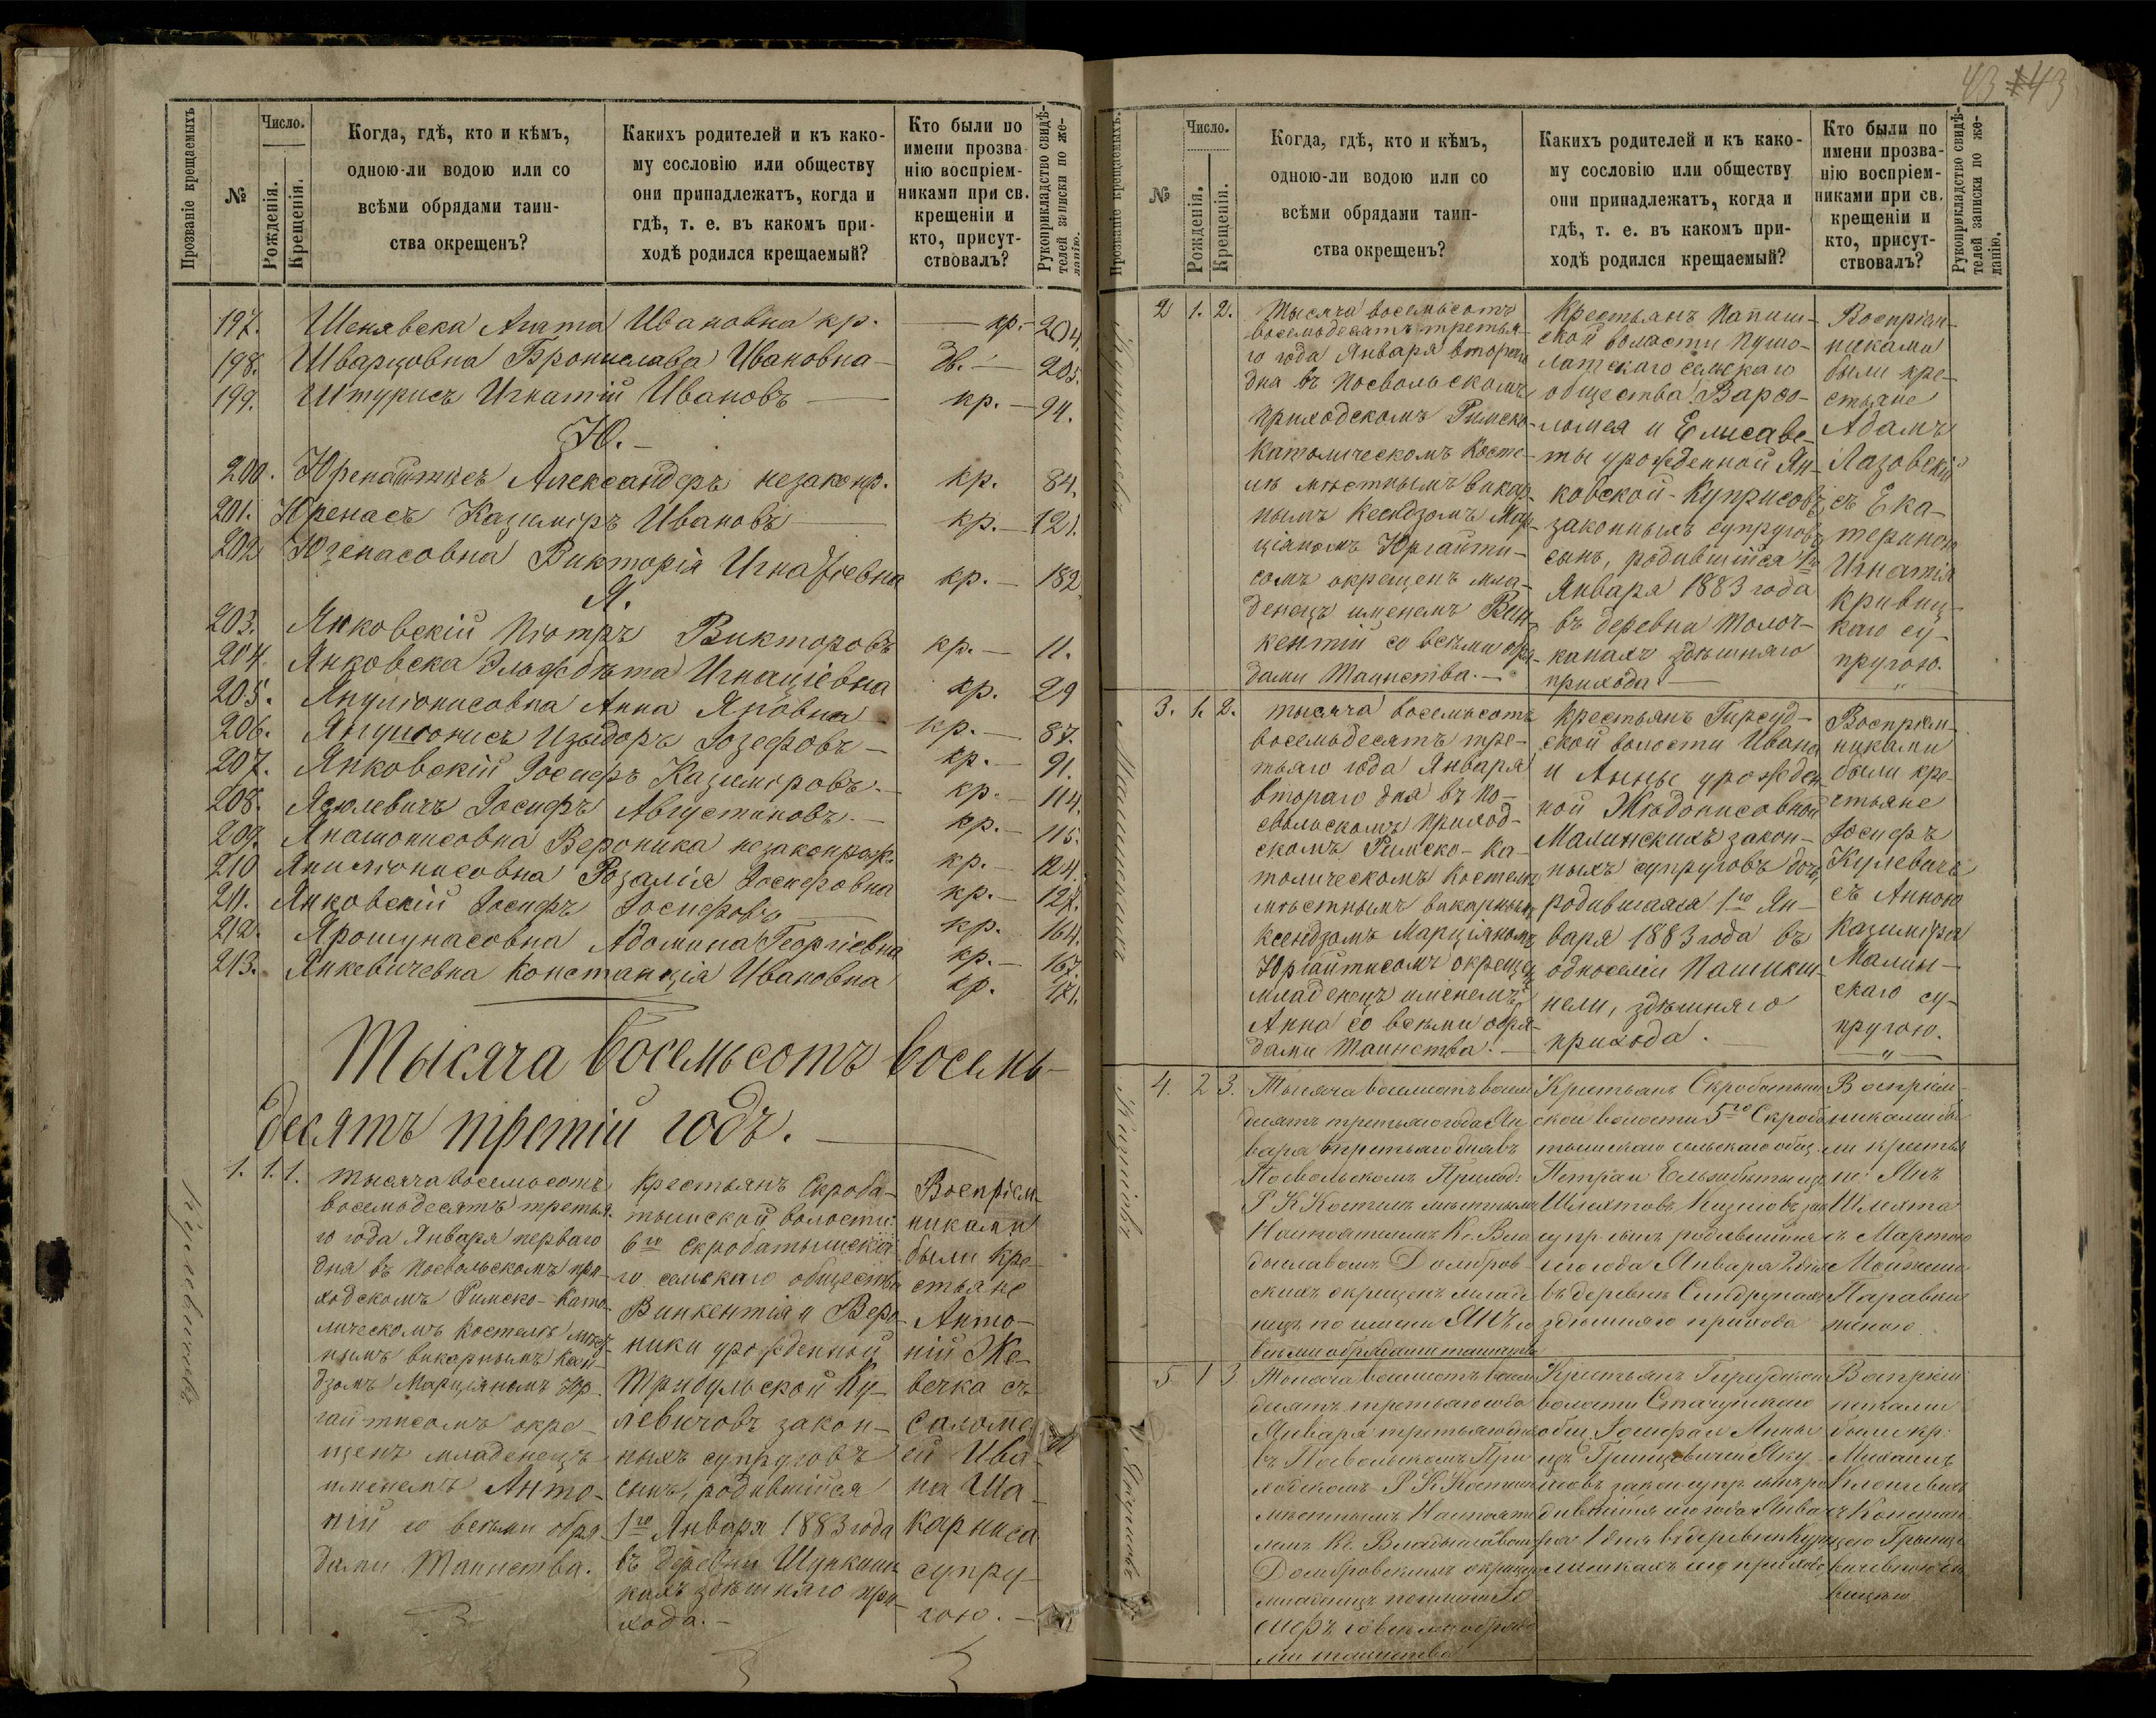 Прозваніе крещаемыхъ
№
Число.
Рожденія.
Крещенія.
Когда, гдѣ, кто и кѣмъ,
одною-ли водою или со
всѣми обрядами таин-
ства окрещенъ?
Какихъ родителей и къ како-
му сословію или обществу
они принадлежатъ, когда и
гдѣ, т. е. въ какомъ при-
ходѣ родился крещаемый?
Кто были по
имени прозва-
нію воспріем-
никами при св.
крещеніи и
кто, присут-
ствовалъ?
Рукоприкладство свидѣ-
телей записки по же-
ланію.
197. Шенявска Агата Ивановна кр. — кр. — 204.
198. Шварцовна Брониславa Ивановна — дв. — 205.
199. Штурисъ Игнатій Ивановъ — кр. — 94.
Ю. —
200. Юренайтисъ Александеръ незаконр. кр. 84.
201. Юренасъ Казиміръ Ивановъ — кр. — 121.
202 Юзенасовна Викторія Игнатіевна кр. — 182.
Я.
203. Янковскій Піотръ Викторовъ кр. — 11.
204. Янковска Эльжбѣта Игнаціевна кр. 29
205. Янулюнисовна Анна Яновна — кр. — 87.
206. Янушонисъ Изыдоръ Іозефовъ — кр. — 91.
207. Янковскій Іосифъ Казиміровъ. — кр. — 114.
208. Ясюлевичъ Іосифъ Августиновъ. — кр. — 115.
209. Яношонисовна Вероника незаконрож. кр. — 124.
210 Янилюнисовна Розалія Іосифовна кр. — 127.
211. Янковскій Іосифъ Іосифовъ — кр. 164.
212. Ярошунасовна Адомина Георгіевна кр. — 167.
213. Янкевичевна Констанція Ивановна кр. 171.
Тысяча восемьсотъ восемь-
десятъ третій годъ. —
Кулевичъ
1. 1. 1.
Тысяча восемьсотъ
восемьдесятъ третья-
го года Января перваго
дня въ Посвольскомъ при-
ходскомъ Римско-Като-
лическомъ костелѣ мѣст-
нымъ викарнымъ Ксен-
дзомъ Марціяномъ Юр-
гайтисомъ окре-
щенъ младенецъ
именемъ Анто-
ній со всѣми обря-
дами Таинства.
Крестьянъ Скроба-
тышской волости
6го Скробатышска-
го сельскаго общества
Винкентія и Веро-
ники урожденной
Трибульской Ку-
левичовъ закон-
ныхъ супруговъ
сынъ, родившійся
1го Января 1883 года
въ деревни Шункиш-
кахъ здѣшняго при-
хода. —
Воспріем-
никами
были кре-
стьяне
Анто-
ній Же-
вечка съ
Саломе-
ей Ива-
на Ша-
карниса
супру-
гою. —
43 43
Прозваніе крещаемыхъ.
№
Число.
Рожденія.
Крещенія.
Когда, гдѣ, кто и кѣмъ,
одною-ли водою или со
всѣми обрядами таин-
ства окрещенъ?
Какихъ родителей и къ како-
му сословію или обществу
они принадлежатъ, когда и
гдѣ, т. е. въ какомъ при-
ходѣ родился крещаемый?
Кто были по
имени прозва-
нію воспріем-
никами при св.
крещеніи и
кто, присут-
ствовалъ?
Рукоприкладство свидѣ-
телей записки по же-
ланію.
Куприсъ
2 1. 2.
Тысяча восемьсотъ
восемьдесятъ третья-
го года Января второго
дня въ Посвольскомъ
приходскомъ Римско-
Католическомъ Косте-
лѣ мѣстнымъ викар-
нымъ Ксендзомъ Мар-
ціяномъ Юргайти-
сомъ окрещенъ мла-
денецъ именемъ Вин-
кентій со всѣми обря-
дами Таинства. —
Крестьянъ Папиш-
ской волости Пушо-
латскаго сельскаго
общества Варѳо-
ломея и Елисаве-
ты урожденной Ян-
ковской-Куприсовъ,
законныхъ супруговъ
сынъ, родившійся 1го
Января 1883 года
въ деревни Толоч-
канахъ здѣшняго
прихода —
Воспріем-
никами
были кре-
стьяне
Адамъ
Лазовскій
съ Ека-
териною
Игнатія
Кривиц-
каго су-
пругою.
Малинскихъ
3. 1. 2.
Тысяча восемьсотъ
восемьдесятъ тре-
тьяго года Января
втораго дня въ По-
свольскомъ приход-
скомъ Римско-Ка-
толическомъ Костелѣ
мѣстнымъ викарнымъ
Ксендзомъ Марціяномъ
Юргайтисомъ окрещенъ
младенецъ именемъ
Анна со всѣми обря-
дами Таинства. —
Крестьянъ Гирсуд-
ской волости Ивана
и Анны урожден-
ной Жьдонисовной
Малинскихъ закон-
ныхъ супруговъ дочь,
родившаяся 1го Ян-
варя 1883 года въ
односеліи Пашики-
нели, здѣшняго
прихода. —
Воспріем-
никами
были кре-
стьяне
Іосифъ
Кулевичъ
съ Анною
Казиміра
Малин-
скаго су-
пругою.
4. 2 3.
Тысяча восемьсотъ восемь
десятъ третьяго года Ян
варя третьяго дня въ
Посвольскомъ Приход:
Р К Костелѣ мѣстнымъ
Настоятелемъ Кс. Вла
диславомъ Домбров-
скимъ окрещенъ младе
нецъ по имени Янъ со
всѣми обрядами таинства
Крестьянъ Скробатыш
ской волости 5го Скроба
тышскаго сельскаго общ.
Петра и Ельжбѣты изъ
супр. сынъ родившійся
сего года Января 2 дня
въ деревнѣ Синдрунахъ
здѣшняго прихода
Воспріем-
никами бы
ли крестья
не: Янъ
Шляхта
съ Мартою
5 1 3
Тысяча восемьсотъ восем
десятъ третьяго года
Января третьяго дня
въ Посвольскомъ При
ходскомъ Р К Костелѣ
мѣстнымъ Настояте
лемъ Кс. Владиславомъ
Домбровскимъ окрещенъ
младенецъ по имени Іо
сифъ со всѣми обряда
ми таинства
Крестьянъ Гирсудской
волости
общ. Іосифа и Анны
изъ
прихода
Воспріем
никами
были кр:
Михаилъ